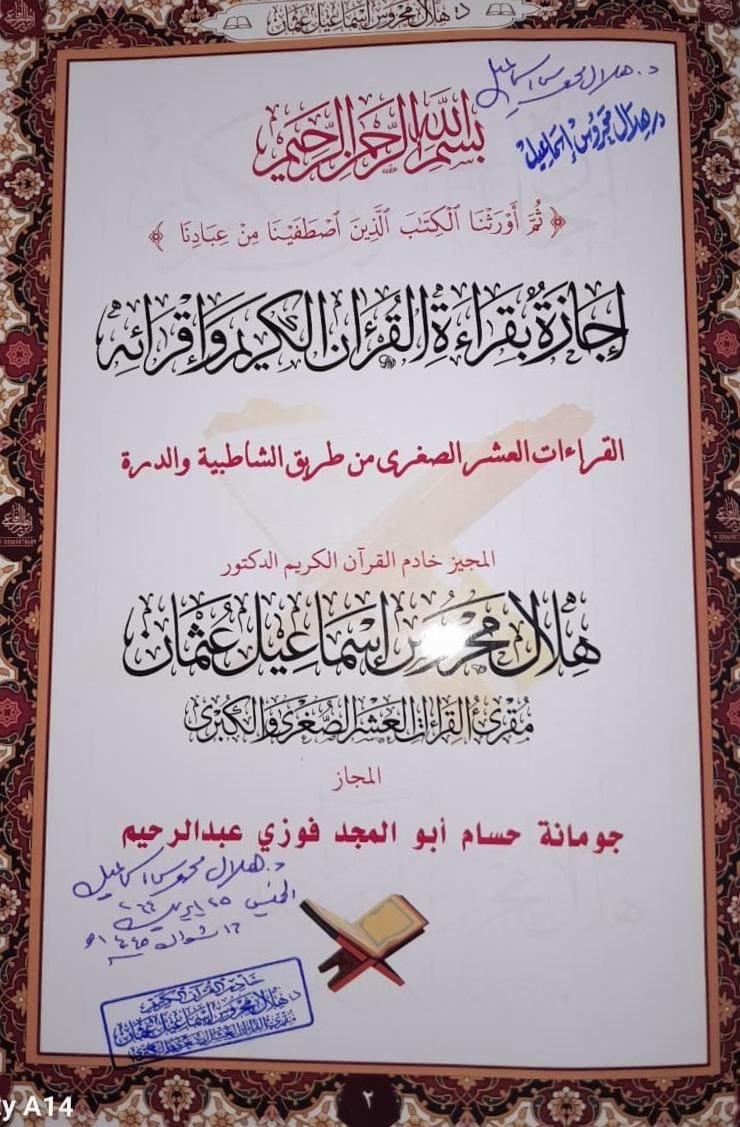 د هلال محروس إسماعيل عثمان
د. هلال محروس اسماعيل
د. هلال محروس إسماعيل
بسم الله الرحمن الرحيم
﴿ ثُمَّ أَوْرَثْنَا ٱلْكِتَٰبَ ٱلَّذِينَ ٱصْطَفَيْنَا مِنْ عِبَادِنَا ﴾
إجازة بقراءة القرءان الكريم وإقرائه
القراءات العشر الصغرى من طريق الشاطبية والدرة
المجيز خادم القرآن الكريم الدكتور
هلال محروس إسماعيل عثمان
مقرئ القراءات العشر الصغرى والكبرى
المجاز
جومانة حسام أبو المجد فوزي عبدالرحيم
د. هلال محروس اسماعيل
الخميس ٢٥ ابريل
١٦ شوال ١٤٤٥ هـ
خادم القرآن الكريم
د. هلال محروس إسماعيل عثمان
مقرئ القراءات العشر الصغرى والكبرى
٢
y A14